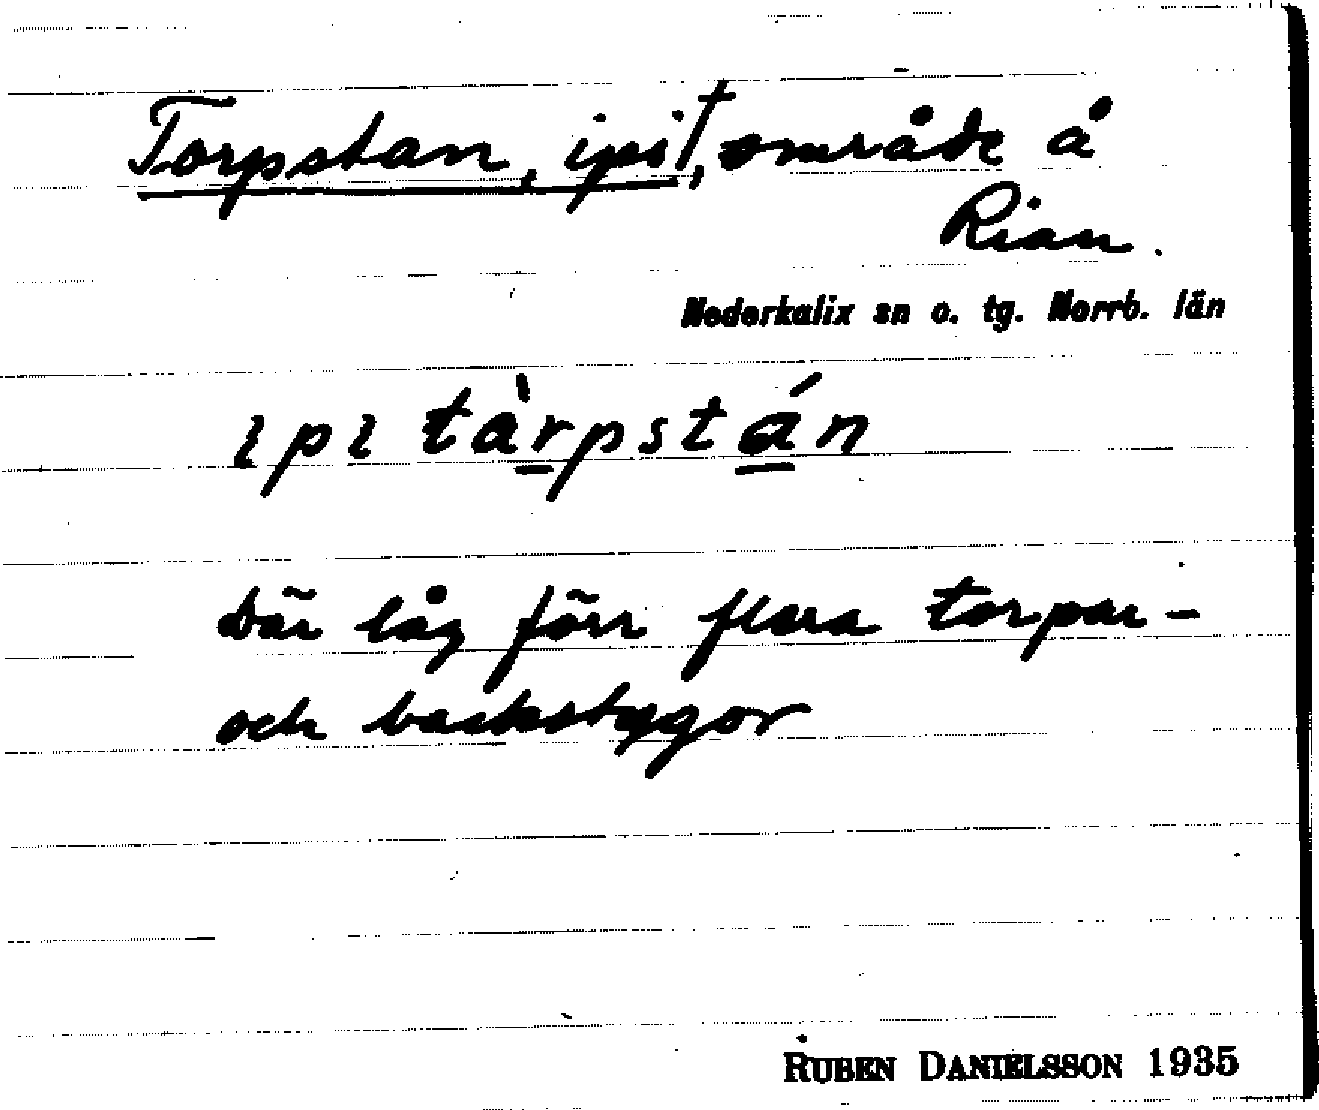 Torpstan, ipi†, område å
Rian.
Nederkalix sn o. tg. Norrb. län
ɩpɩ tàrpstán
Där låg förr flera torpar-
och backstugor
RUBEN DANIELSSON 1935